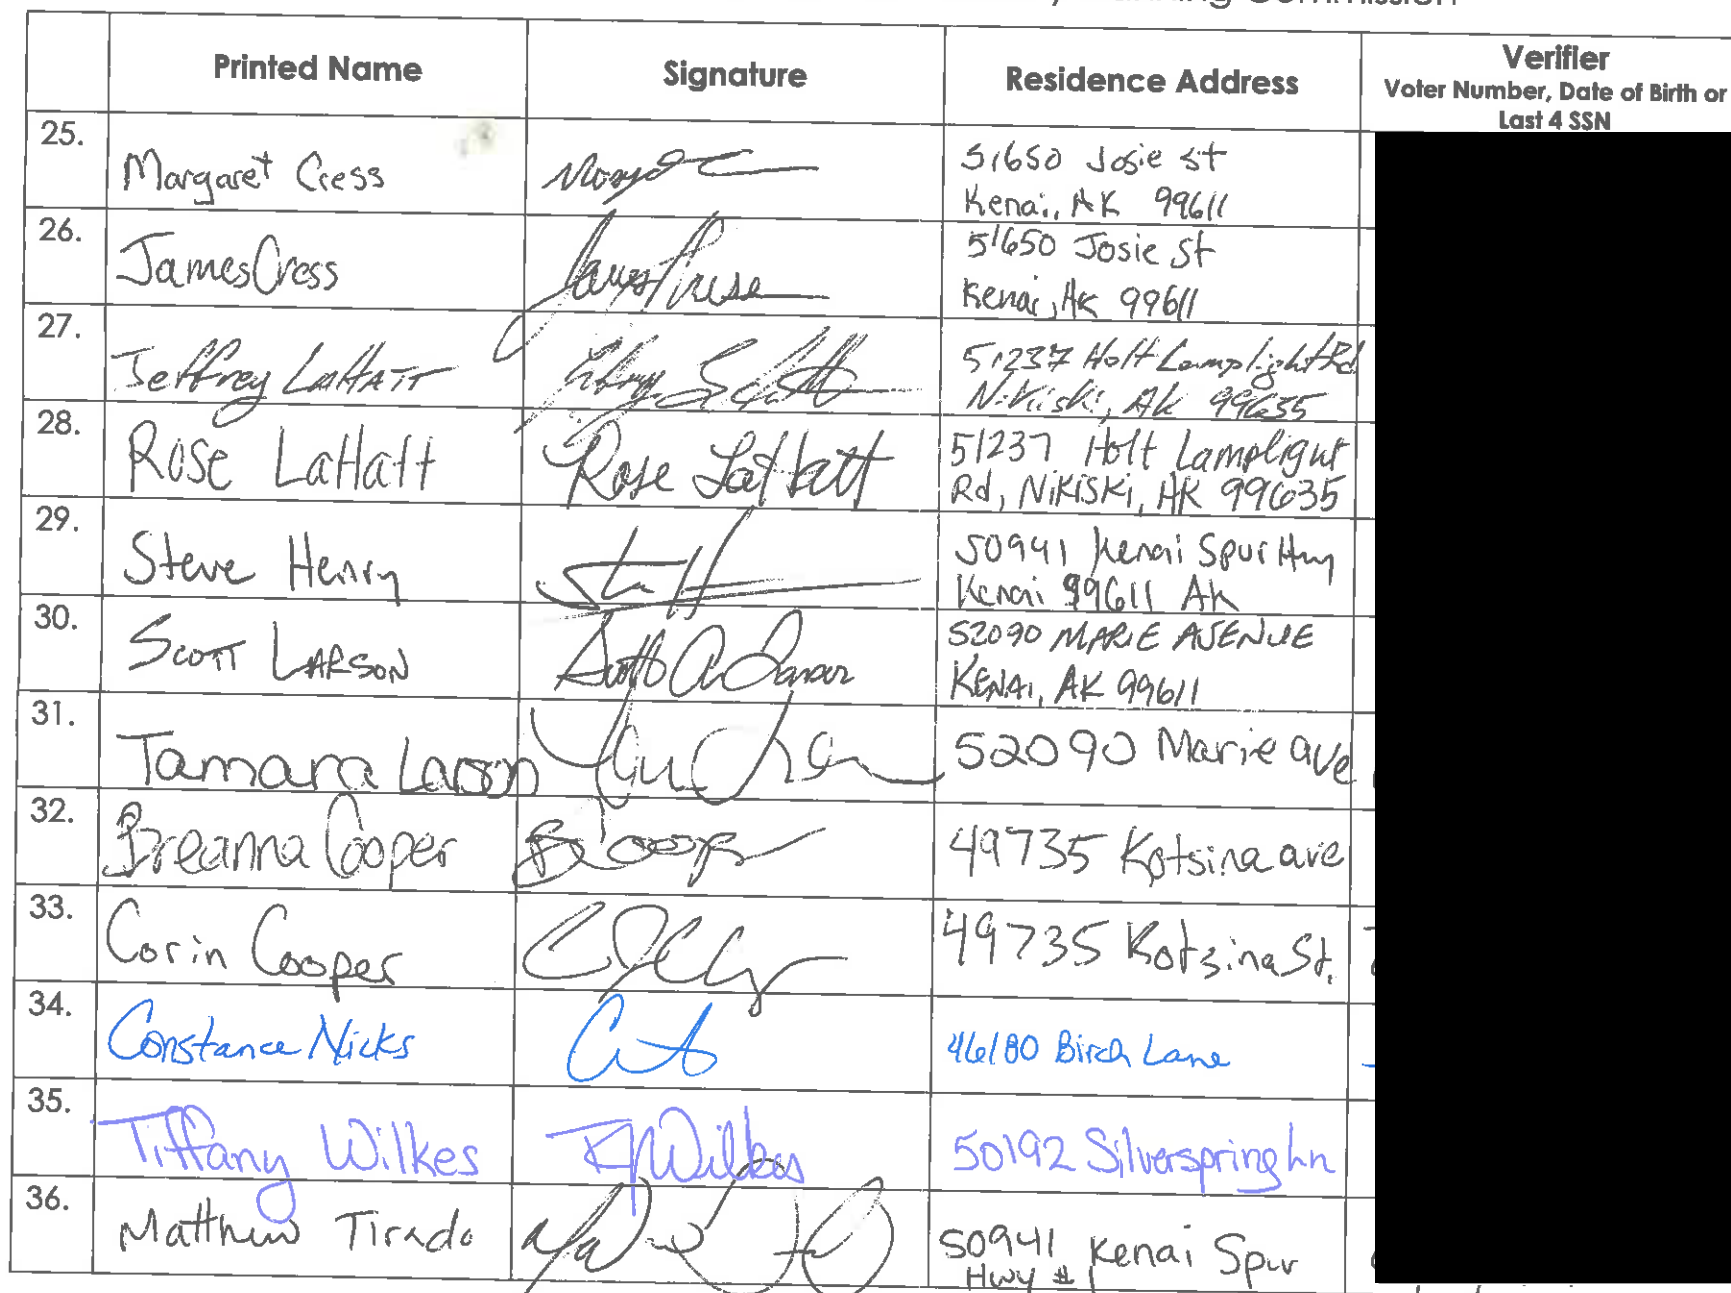 Commission
Printed Name Signature Residence Address Verifier
Voter Number, Date of Birth or
Last 4 SSN
25. Margaret Cress 51650 Josie St
Kenai, AK 99611
26. James Cress 51650 Josie St
Kenai, AK 99611
27. Jeffrey LaHatt 51237 Holt Lamplight Rd
Nikiski, AK 99635
28. Rose LaHatt Rose LaHatt 51237 Holt Lamplight
Rd, Nikiski, AK 99635
29. Steve Henry 50941 Kenai Spur Hwy
Kenai 99611 AK
30. Scott Larson Scott A Larson 52090 MARIE AVENUE
KENAI, AK 99611
31. Tamara Larson 52090 Marie ave
32. Breanna Cooper B Cooper 49735 Kotsina ave
33. Corin Cooper 49735 Kotzina St.
34. Constance Nicks 46180 Birch Lane
35. Tiffany Wilkes Wilkes 50192 Silverspring Ln
36. Matthew Tirado 50941 Kenai Spur
Hwy # 1